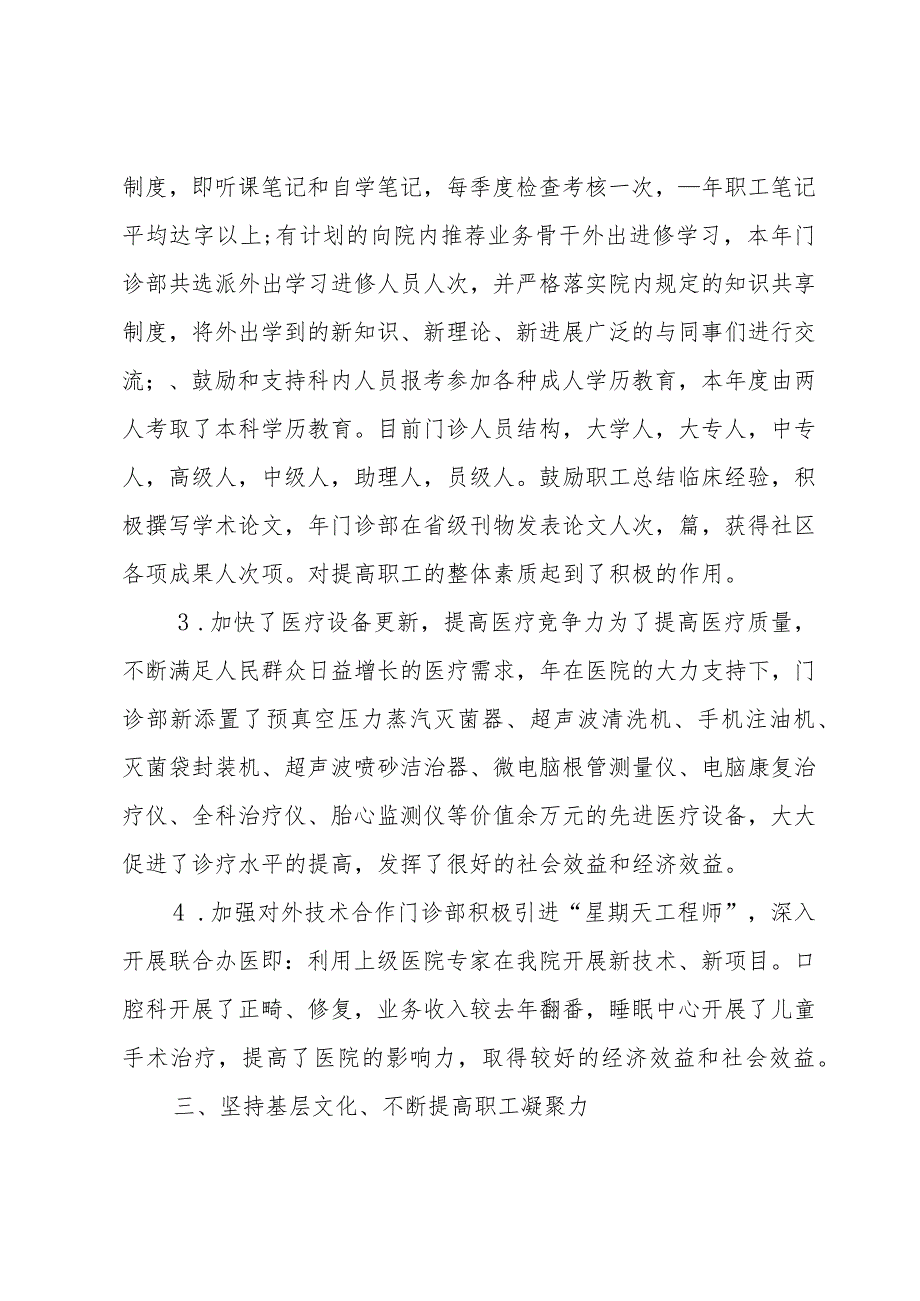 制度，即听课笔记和自学笔记，每季度检查考核一次，—年职工笔记
平均达字以上;有计划的向院内推荐业务骨干外出进修学习，本年门
诊部共选派外出学习进修人员人次，并严格落实院内规定的知识共享
制度，将外出学到的新知识、新理论、新进展广泛的与同事们进行交
流；、鼓励和支持科内人员报考参加各种成人学历教育，本年度由两
人考取了本科学历教育。目前门诊人员结构，大学人，大专人，中专
人，高级人，中级人，助理人，员级人。鼓励职工总结临床经验，积
极撰写学术论文，年门诊部在省级刊物发表论文人次，篇，获得社区
各项成果人次项。对提高职工的整体素质起到了积极的作用。
3.加快了医疗设备更新，提高医疗竞争力为了提高医疗质量，
不断满足人民群众日益增长的医疗需求，年在医院的大力支持下，门
诊部新添置了预真空压力蒸汽灭菌器、超声波清洗机、手机注油机、
灭菌袋封装机、超声波喷砂洁治器、微电脑根管测量仪、电脑康复治
疗仪、全科治疗仪、胎心监测仪等价值余万元的先进医疗设备，大大
促进了诊疗水平的提高，发挥了很好的社会效益和经济效益。
4.加强对外技术合作门诊部积极引进“星期天工程师”，深入
开展联合办医即：利用上级医院专家在我院开展新技术、新项目。口
腔科开展了正畸、修复，业务收入较去年翻番，睡眠中心开展了儿童
手术治疗，提高了医院的影响力，取得较好的经济效益和社会效益。
三、坚持基层文化、不断提高职工凝聚力